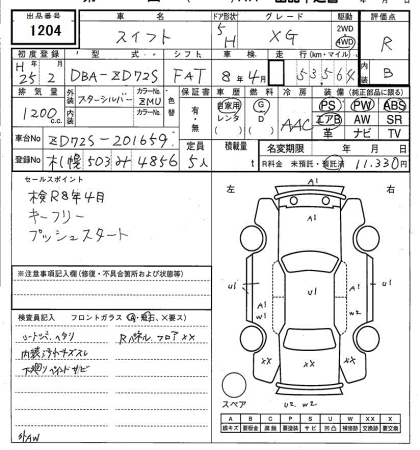 出品番号 車名 ドア形状 グレード 駆動 評価点
1204 スイフト 5H XG 2WD 4WD R
初度登録 型式 シフト 車検 走行(km・マイル) 内装
H25 2 DBA-ZD72S FAT 8年4月 53,564 B
排気量 外装 カラーNo. 色替 保証書 車歴 燃料 冷房 装備(純正部品に限る)
1200 c.c. スターシルバー ZMU 有・無 自家用 レンタ G D AAC PS PW ABS
内装 カラーNo. エアB AW SR
革 ナビ TV
車台No ZD72S-201659 定員 積載量 名変期限 年 月 日
登録No 札幌 503 み 4856 5人 t R料金 未預託・預託済 11.330円
セールスポイント
検R8年4月
キーフリー
プッシュスタート
左 右
A1
U1 A1 W1 U1 A1 W2
XX XX
※注意事項記入欄(修復・不具合箇所および状態等)
検査員記入 フロントガラス(A・飛石、X要ス)
シートシミ、ヘタリ Rパネル、フロアXX
内装ヨゴレキズスレ
下廻りペイントサビ
外AW
スペア U2 W2
A B C P S U W X XX
線キズ 要板金 腐蝕 要塗装 サビ 凹凸 補修跡 要交換 交換済